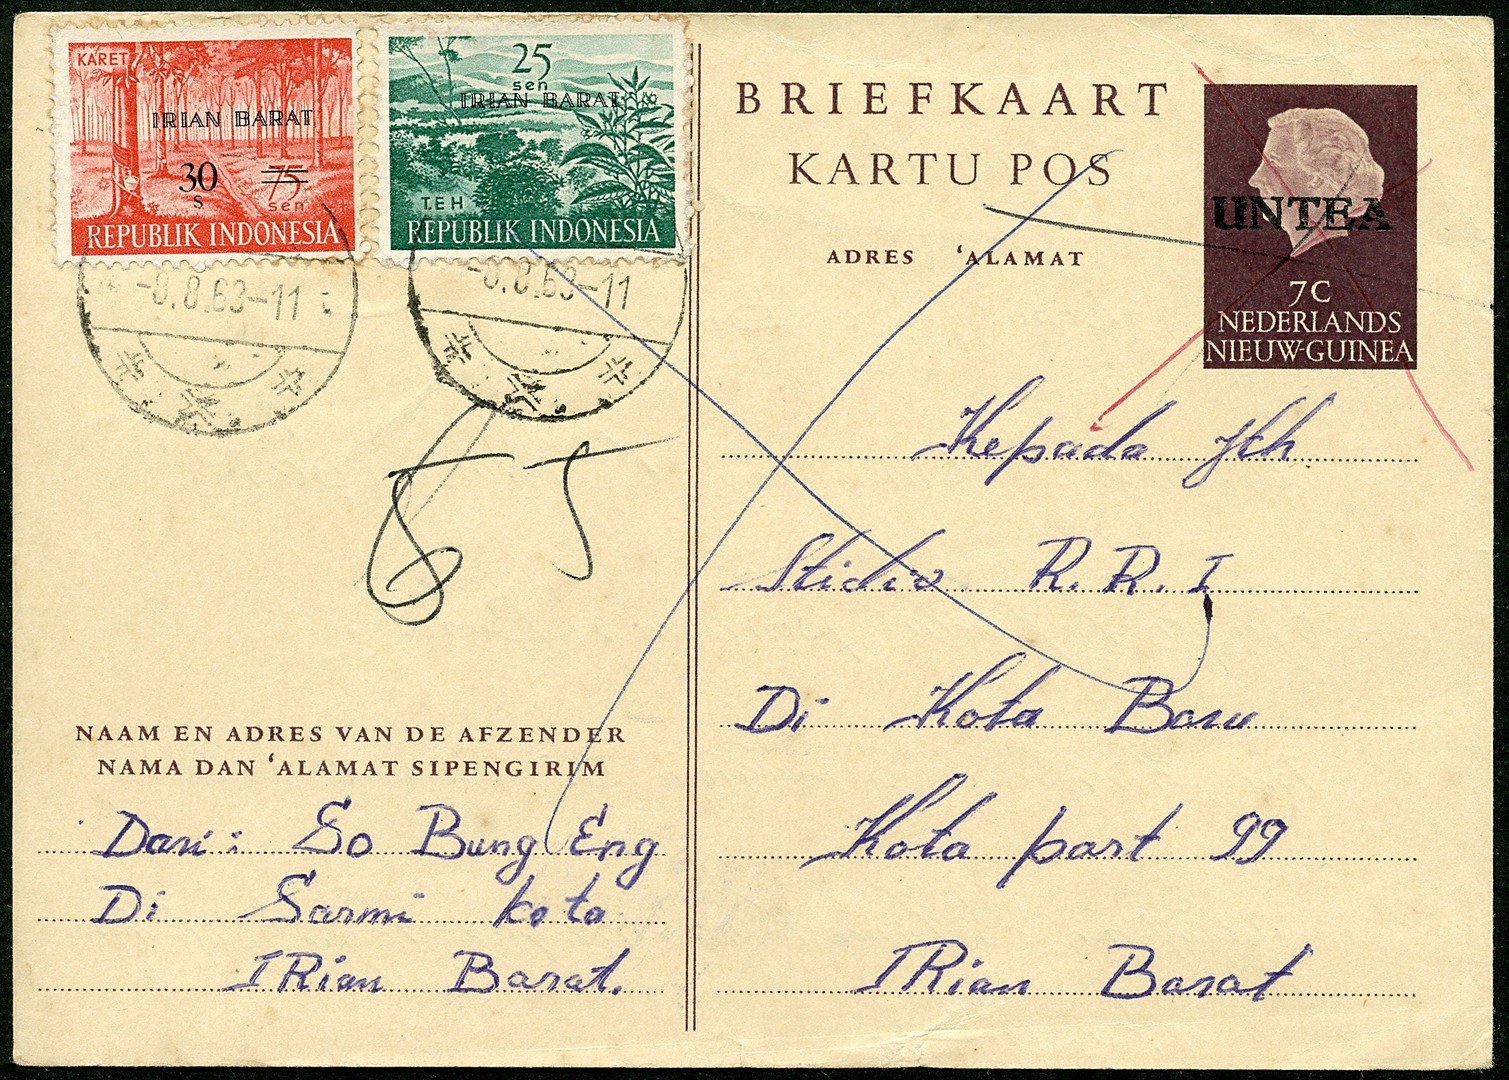 KARET
IRIAN BARAT
30
s
75
sen
REPUBLIK INDONESIA
25
sen
IRIAN BARAT
TEH
REPUBLIK INDONESIA
-8.8.63-11
-8.8.63-11
BRIEFKAART
KARTU POS
ADRES 'ALAMAT
UNTEA
7C
NEDERLANDS
NIEUW-GUINEA
Kepada Jth
Stidio R.R.I
Di Kota Baru
Kota part 99
IRian Barat
NAAM EN ADRES VAN DE AFZENDER
NAMA DAN 'ALAMAT SIPENGIRIM
Dari: So Bung Eng
Di Sarmi kota
IRian Barat.